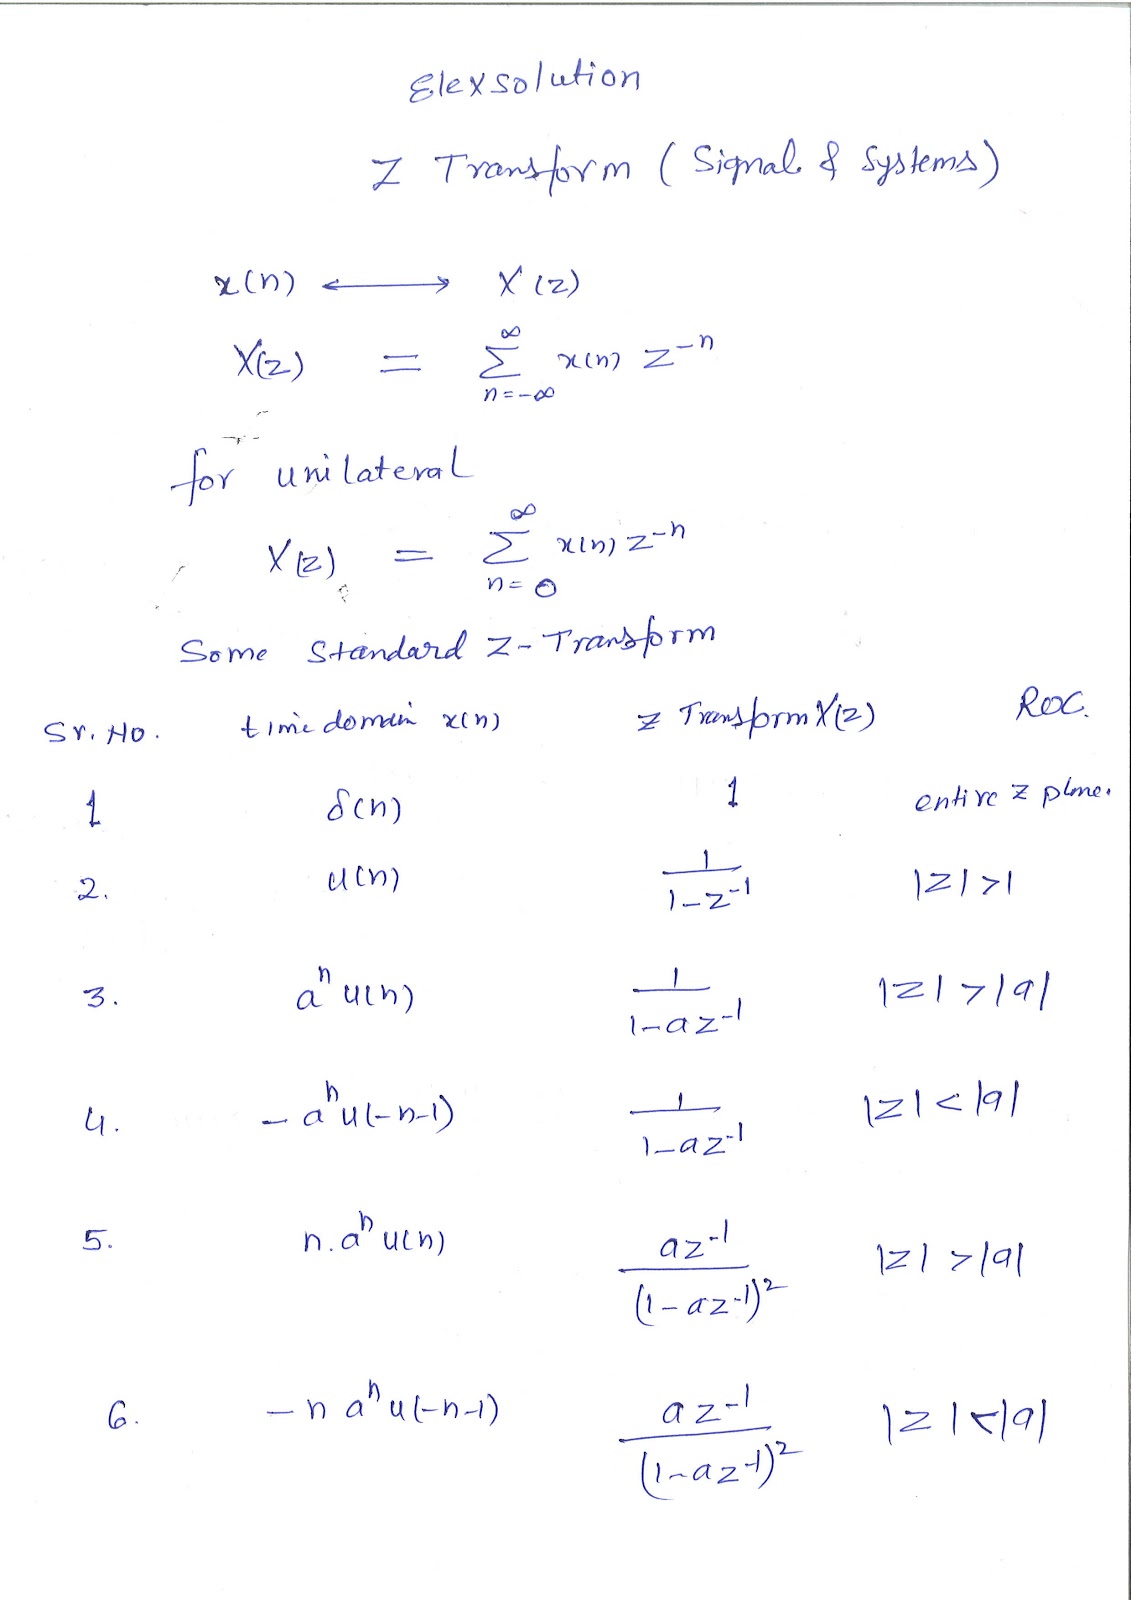 Elexsolution
Z Transform ( Signal & Systems )
x(n) ⟷ X(z)
X(z) = ∞ Σ n=-∞ x(n) z^-n
for unilateral
X(z) = ∞ Σ n=0 x(n) z^-n
Some Standard Z-Transform
Sr. No. time domain x(n) z Transform X(z) ROC.
1 δ(n) 1 entire z plane.
2. u(n) 1/(1-z^-1) |z|>1
3. a^n u(n) 1/(1-az^-1) |z|>|a|
4. -a^n u(-n-1) 1/(1-az^-1) |z|<|a|
5. n.a^n u(n) az^-1/(1-az^-1)^2 |z|>|a|
6. -n a^n u(-n-1) az^-1/(1-az^-1)^2 |z|<|a|